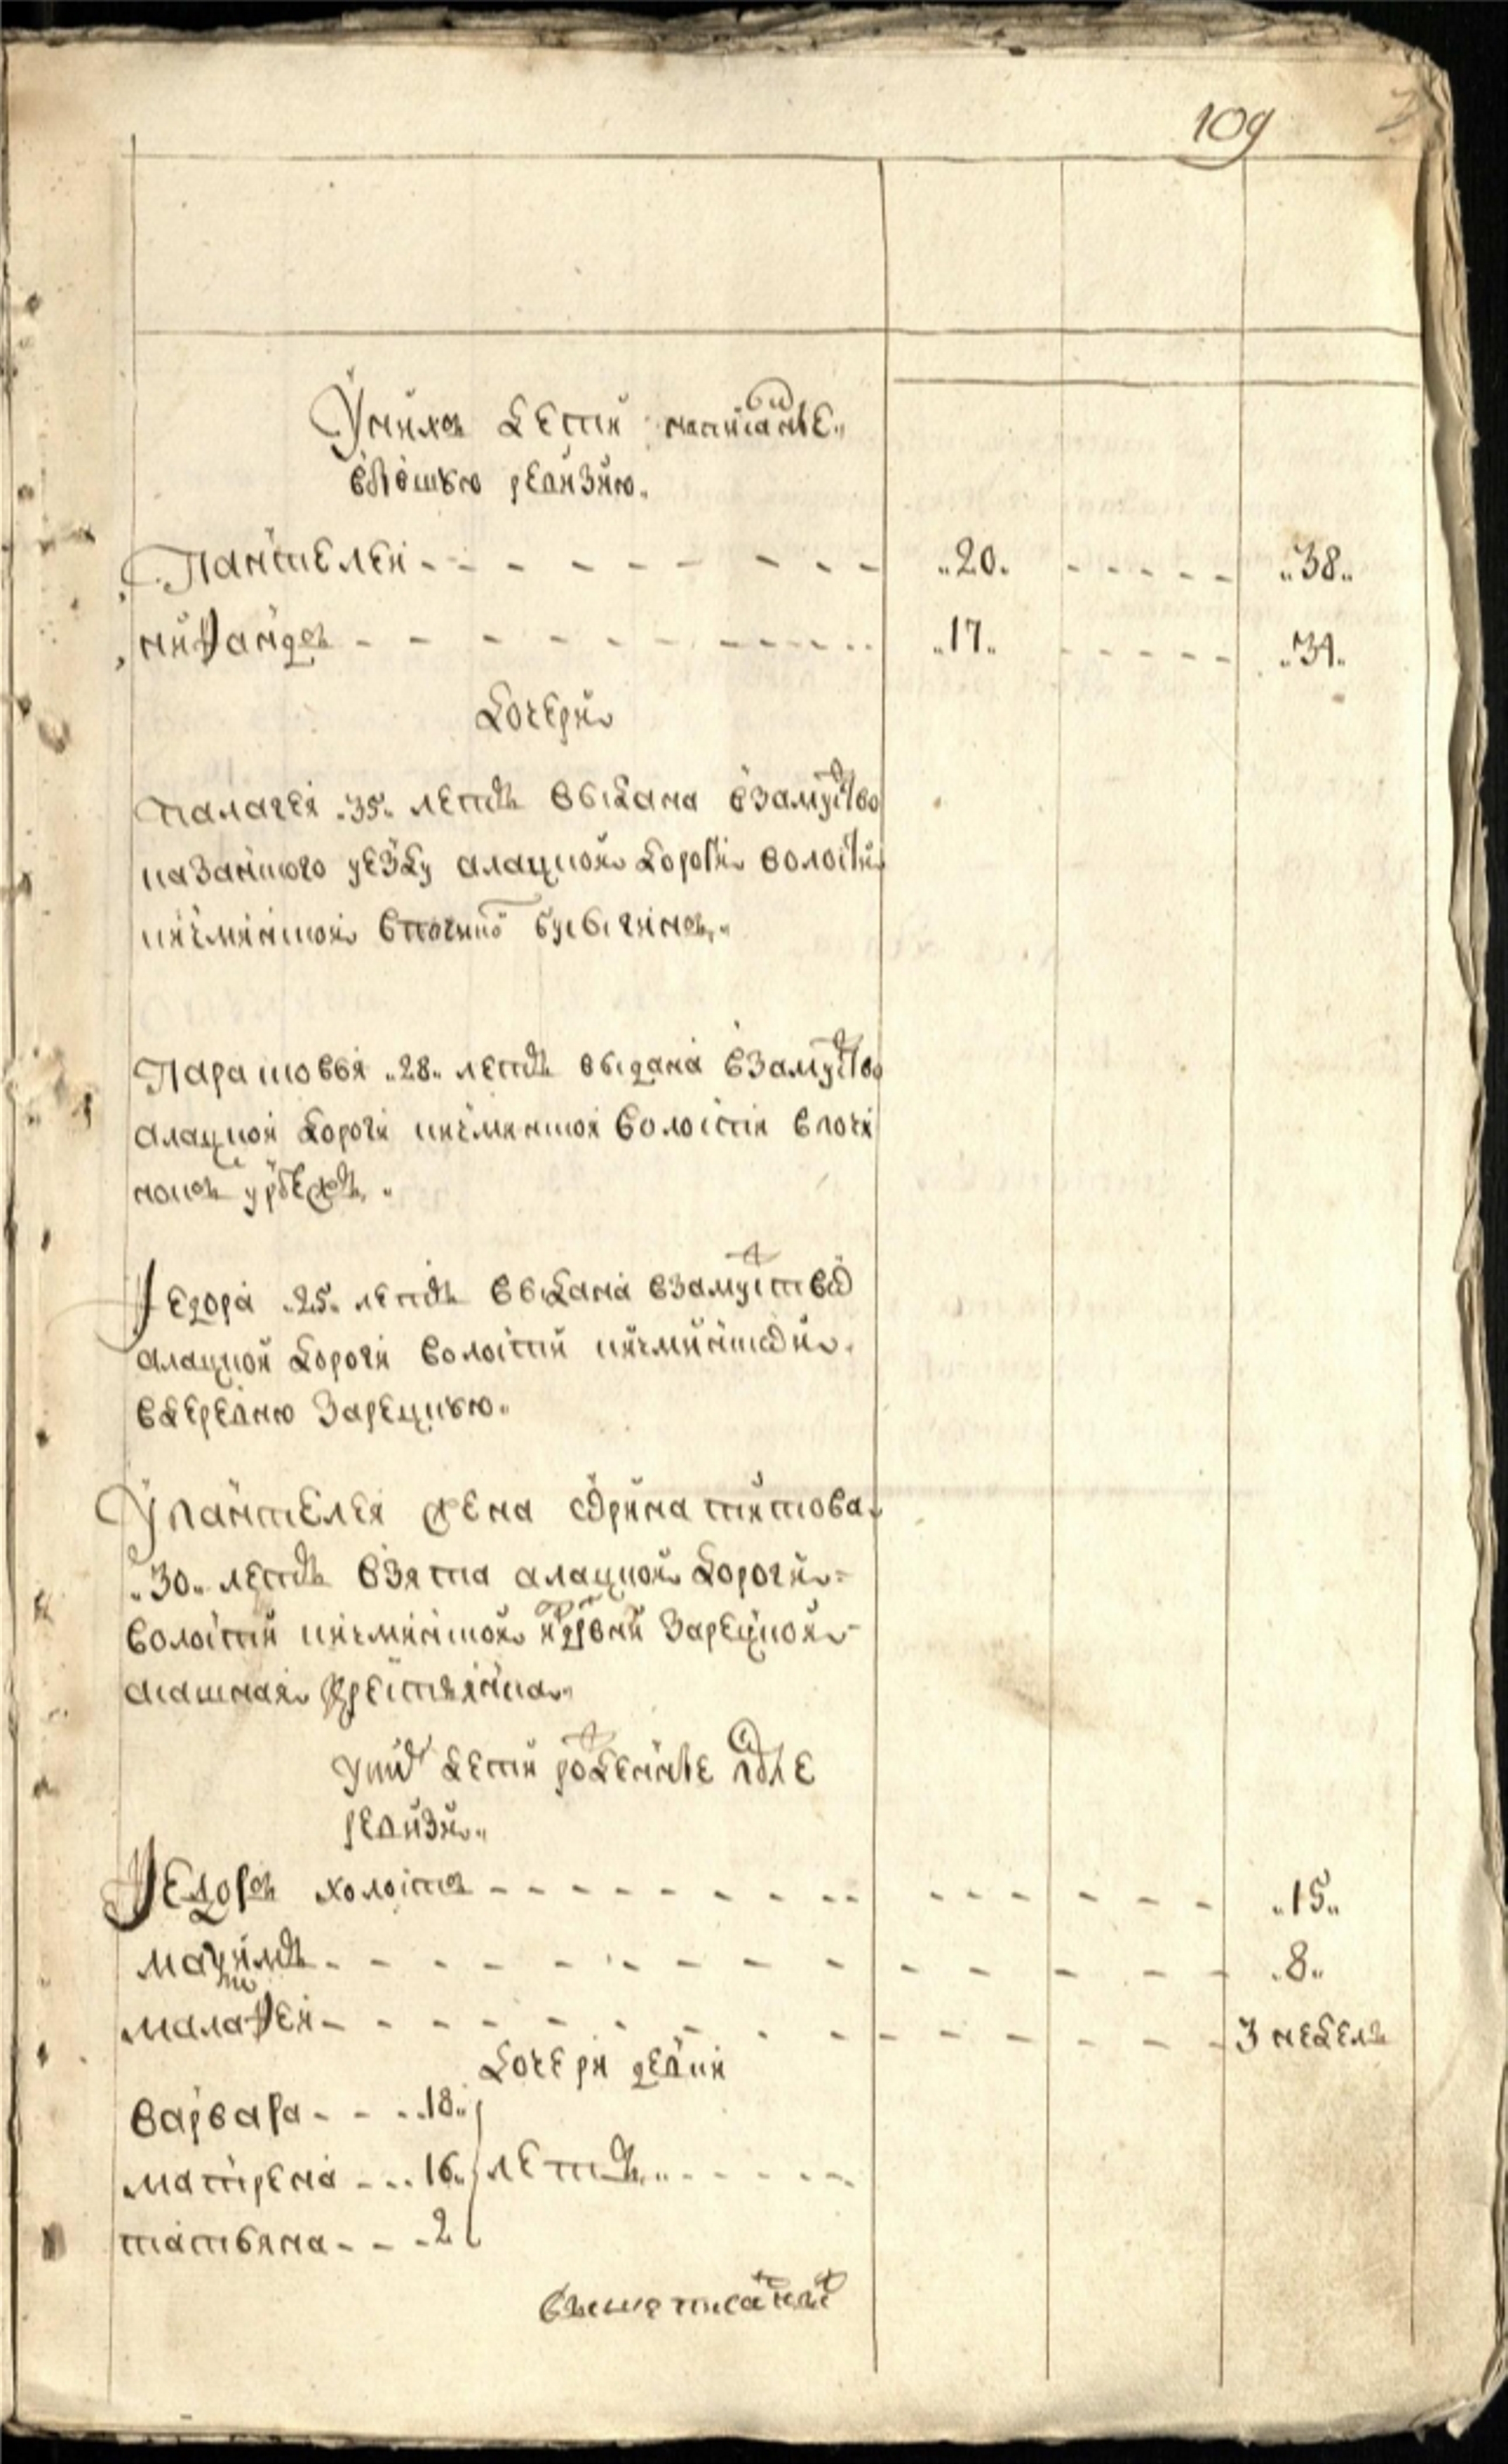 109
Униχъ дети написаные
въпъошкю ревизию
Пантелеи 20 38
никандръ 17 34
дочери
палагея 35 летъ выдана взамуство
казанкого уезду алацкои дороги волости
кичминкои впочинкъ
Парасковья 28 летъ выдана взамуство
алацкои дороги кичминкои волости впочи
нокъ
Федора 25 летъ выдана взамуство
алацкои дороги волости кичминкои
вдеревню Зарецкую
У пантелея жена орина титова
30 летъ взята алацкои дороги
волости кичминкои из дрвни Зарецкои
ясашная крестьянка
унихъ дети рожденые после
ревизи
Федоръ холостъ 15
максимъ 8
малафеи 3 неделъ
дочери девки
варвара 18
матрена 16 летъ
татьяна 2
вышеписанной